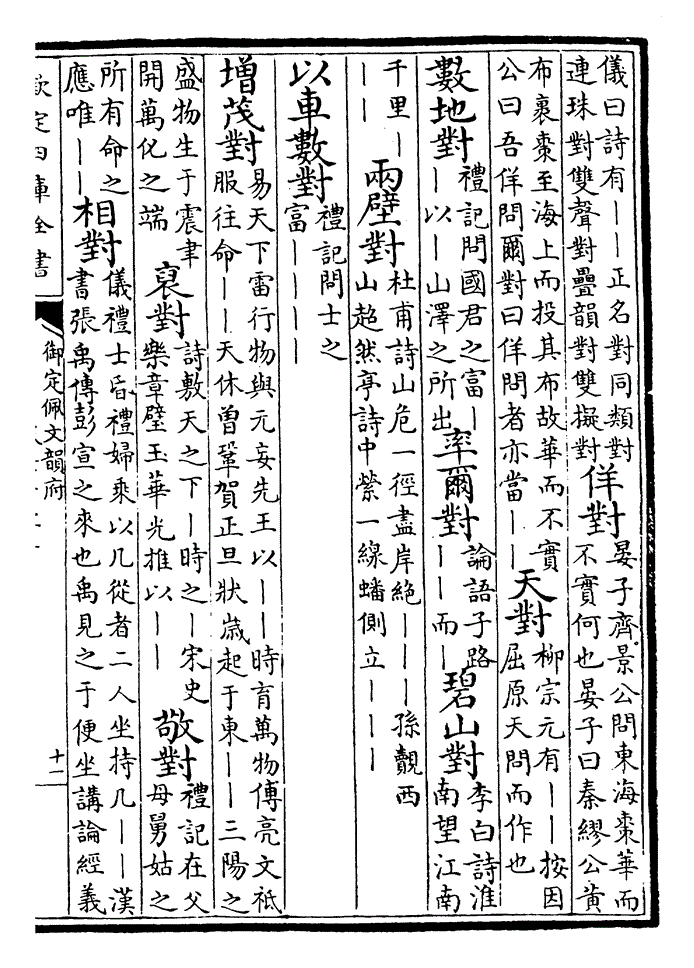 儀曰詩有——正名對同類對
連珠對雙聲對疊韻對雙擬對
佯對
晏子齊景公問東海棗華而
不實何也晏子曰秦繆公黄
布裹棗至海上而投其布故華而不實
公曰吾佯問爾對曰佯問者亦當——
天對
柳宗元有——按因
屈原天問而作也
數地對
禮記問國君之富—
—以—山澤之所出
率爾對
論語子路
——而—
碧山對
李白詩淮
南望江南
千里—
——
兩壁對
杜甫詩山危一徑盡岸絶———孫覿西
山超然亭詩中縈一線蟠側立———
以車數對
禮記問士之
富————
增茂對
易天下雷行物與元妄先王以——時育萬物傅亮文祗
服往命——天休曾鞏賀正旦狀歳起于東——三陽之
盛物生于震聿
開萬化之端
裒對
詩敷天之下—時之—宋史
樂章璧玉華光推以——
敬對
禮記在父
母舅姑之
所有命之
應唯——
相對
儀禮士昏禮婦乘以几從者二人坐持几——漢
書張禹傳彭宣之來也禹見之于便坐講論經義
欽定四庫全書
御定佩文韻府
十一